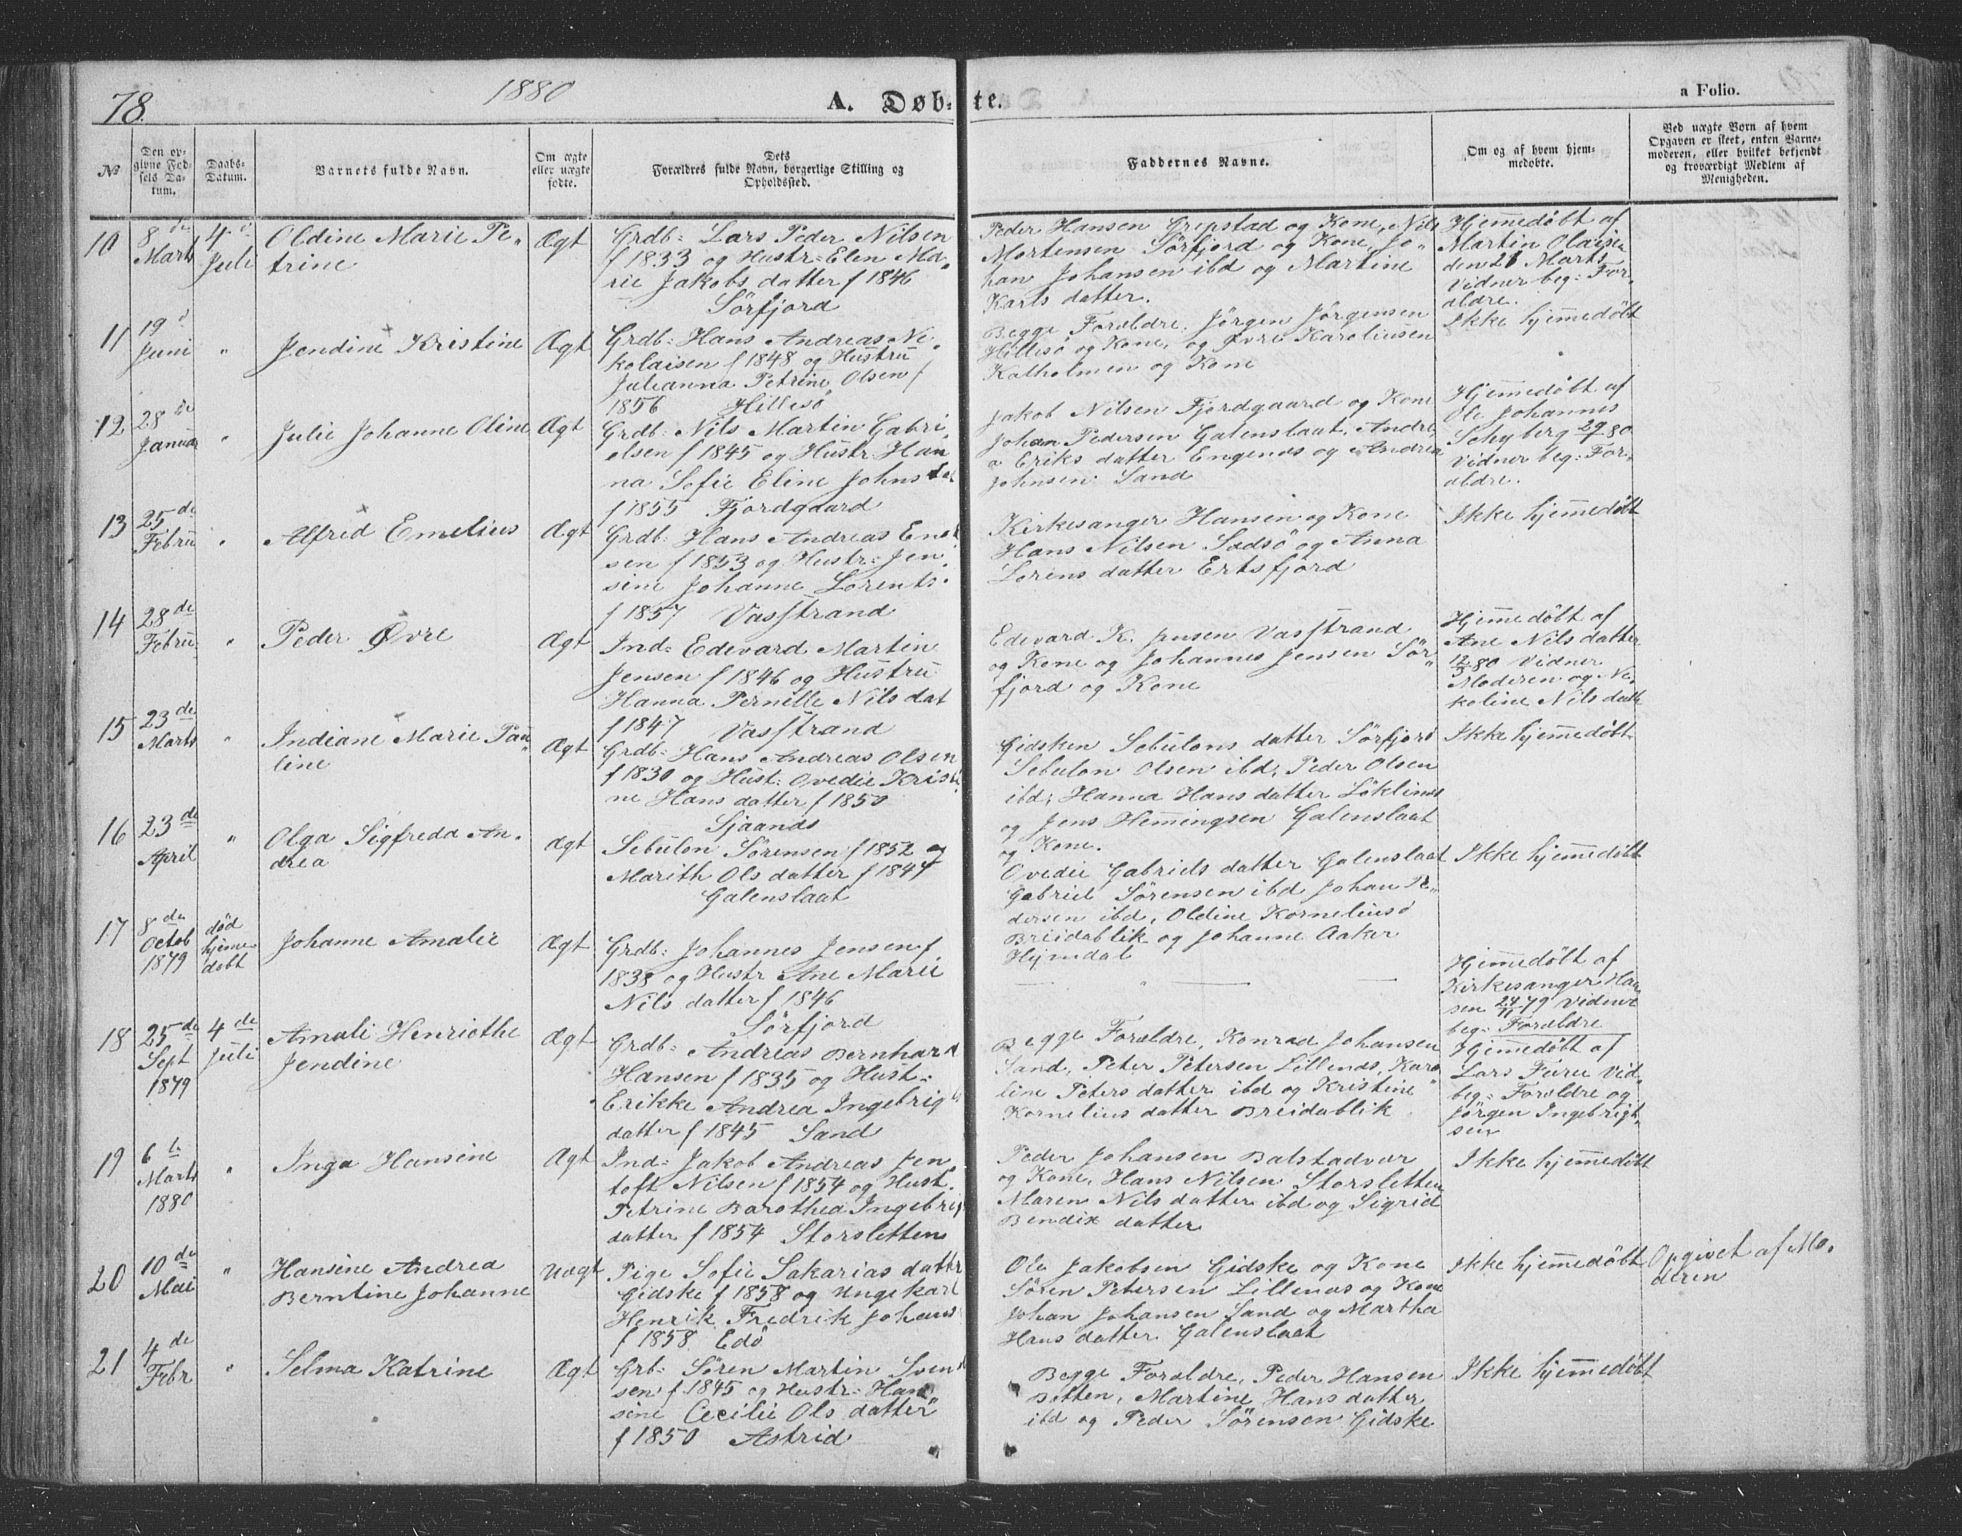 78.
1880
A. Døb-te.
a Folio.
No
Den op-
givne Fød-
sels Da-
tum.
Daabs-
Datum.
Barnets fulde Navn.
Om ægte
eller uægte
fødte.
Dets
Forældres fulde Navn, borgerlige Stilling og
Opholdssted.
Faddernes Navne.
Om og af hvem hjem-
medøbte.
Ved uægte Børn af hvem
Opgaven er skeet, enten Barne-
moderen, eller hvilket bekjendt
og troværdigt Medlem af
Menigheden.
10
8de
Marts
4d
Juli
Oldine Marie Pe-
trine
Ægt
Grdb: Lars Peder Nilsen
f 1833 og Hustr: Elen Ma-
rie Jakobs datter f 1846
Sörfjord
Peder Hansen Grepstad og Kone, Nils
Mortensen Sörfjord og Kone, Jo-
han Johansen ibd og Martine
Karls datter.
Hjemmedöbt af
Martin Olaisen
den 21 Marts
Vidner beg: For-
ældre.
11
19d
Juni
"
Jendine Kristine
Ægt
Grdb: Hans Andreas Ni-
kolaisen f 1848 og Hustru
Julianna Petrine Olsen f
1856 Hillesö
Begge Forældre, Jörgen Jörgensen
Hillesö og Kone, og Iver Karoliussen
Kalholmen og Kone
Ikke hjemmedöbt
12
28de
Januar
"
Julie Johanne Oline
Ægt
Grdb: Nils Martin Gabri-
elsen f 1845 og Hustr. Han
na Sofie Eline Johns dat
f 1855 Fjordgaard
Jakob Nilsen Fjordgaard og Kone
Johan Pedersen Galenslaat, Andre,
a Eriks datter Engenæs og Andrea
Johnsen Sand
Hjemmedöbt af
Ole Johannes
Schyberg 29/1 80
Vidner beg: For-
ældre.
13
25de
Febru
"
Alfred Emelius
Ægt
Grdb: Hans Andreas Enok
sen f 1853 og Hustr: Jen-
sine Johanne Lorents-
f 1857 Vasstrand
Kirkesanger Hansen og Kone
Hans Nilsen Sodsö og Anna
Lorens datter Ertsfjord
Ikke hjemmedöbt
14
28de
Febru
"
Peder Øvre
Ægt
Ind: Edevard Martin
Jensen f 1846 og Hustru
Hanna Pernille Nils dat
f 1847 Vasstrand
Edevard K. Jensen Vasstrand
og Kone og Johannes Jensen Sör-
fjord og Kone
Hjemmedöbt af
Ane Nils datter
12/3 80 Vidner
Moderen og Ni-
koline Nils datt
15
23de
Marts
"
Indiane Marie Pau-
line
Ægt
Grdb: Hans Andreas Olsen
f 1830 og Hust: Ovedie Kristi
ne Hans datter f 1850
Sjaanæs
Gidsken Sebulons datter Sörfjord
Sebulon Olsen ibd, Peder Olsen
ibd, Hanna Hans datter Löklinæs
og Jens Hemingsen Galenslaat
og Kone.
Ikke hjemmedöbt
16
23de
April
"
Olga Sigfreda An-
drea
Ægt
Sebulon Sörensen f 1852 og
Marith Ols datter f 1847
Galenslaat
Ovedie Gabriels datter Galenslaat
Gabriel Sörensen ibd Johan Pe-
dersen ibd, Oldine Korneliusd
Breidablik og Johanne Aaker
Hejmdal
Ikke hjemmedöbt
17
8de
Octob
1879
död
hjeme
döbt
Johanne Amalie
Ægt
Grdb: Johannes Jensen f.
1838 og Hustr Ane Marie
Nils datter f 1846
Sörfjord
Hjemmedöbt af
Kirkesanger Han
sen 24/11 79 Vidner
beg: Forældre
18
25de
Sept
1879
4de
Juli
Amali Henriethe
Jendine
Ægt
Grdb: Andreas Bernhard
Hansen f 1835 og Hust-
Erikke Andrea Ingebrigts
datter f 1845 Sand
Begge Forældre, Konrad Johansen
Sand, Peter Petersen Lillenæs, Karo
line Peters datter ibd og Kristine
Kornelius datter Breidablik
Hjemmedöbt af
Lars Furu Vid-
beg: Forældre og
Jörgen Ingebrigt-
sen
19
6te
Marts
1880
"
Inga Hansine
Ægt
Ind: Jakob Andreas Jen-
toft Nilsen f 1854 og Hust.
Petrine Barothea Ingebrigt
datter f 1854 Storsletten
Peder Johansen Balstadvær
og Kone, Hans Nilsen Storsletten
Maren Nils datter ibd og Sigrid
Bendix datter
Ikke hjemmedöbt
20
10de
Mai
"
Hansine Andrea
Berntine Johanne
Uægt
Pige Sofie Sakarias datter
Gidske f 1858 og Ungekarl
Henrik Fredrik Johans
f 1858 Edö
Ole Jakobsen Gidske og Kone
Sören Petersen Lillenæs og Kone
Johan Johansen Sand og Martha
Hans datter Galenslaat
Ikke hjemmedöbt
Opgivet af Mo-
deren
21
4de
Febr
"
Selma Katrine
Ægt
Grb: Sören Martin Svend
sen f 1845 og Hustr: Han
sine Cecilie Ols datter
f 1850 Astrid
Begge Forældre, Peder Hansen
Botten, Martine Hans datter
ibd og Peder Sörensen Gidske
Ikke hjemmedöbt